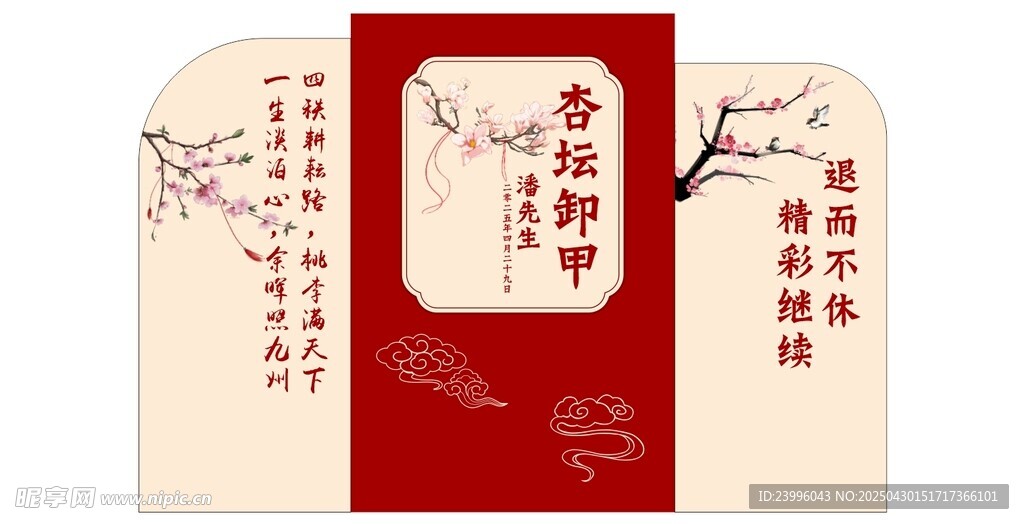 四秩耕耘路，桃李满天下
一生淡泊心，余晖照九州
杏坛卸甲
潘先生
二零二五年四月二十九日
退而不休
精彩继续
昵享网 www.nipic.cn
ID:23996043 NO:20250430151717366101